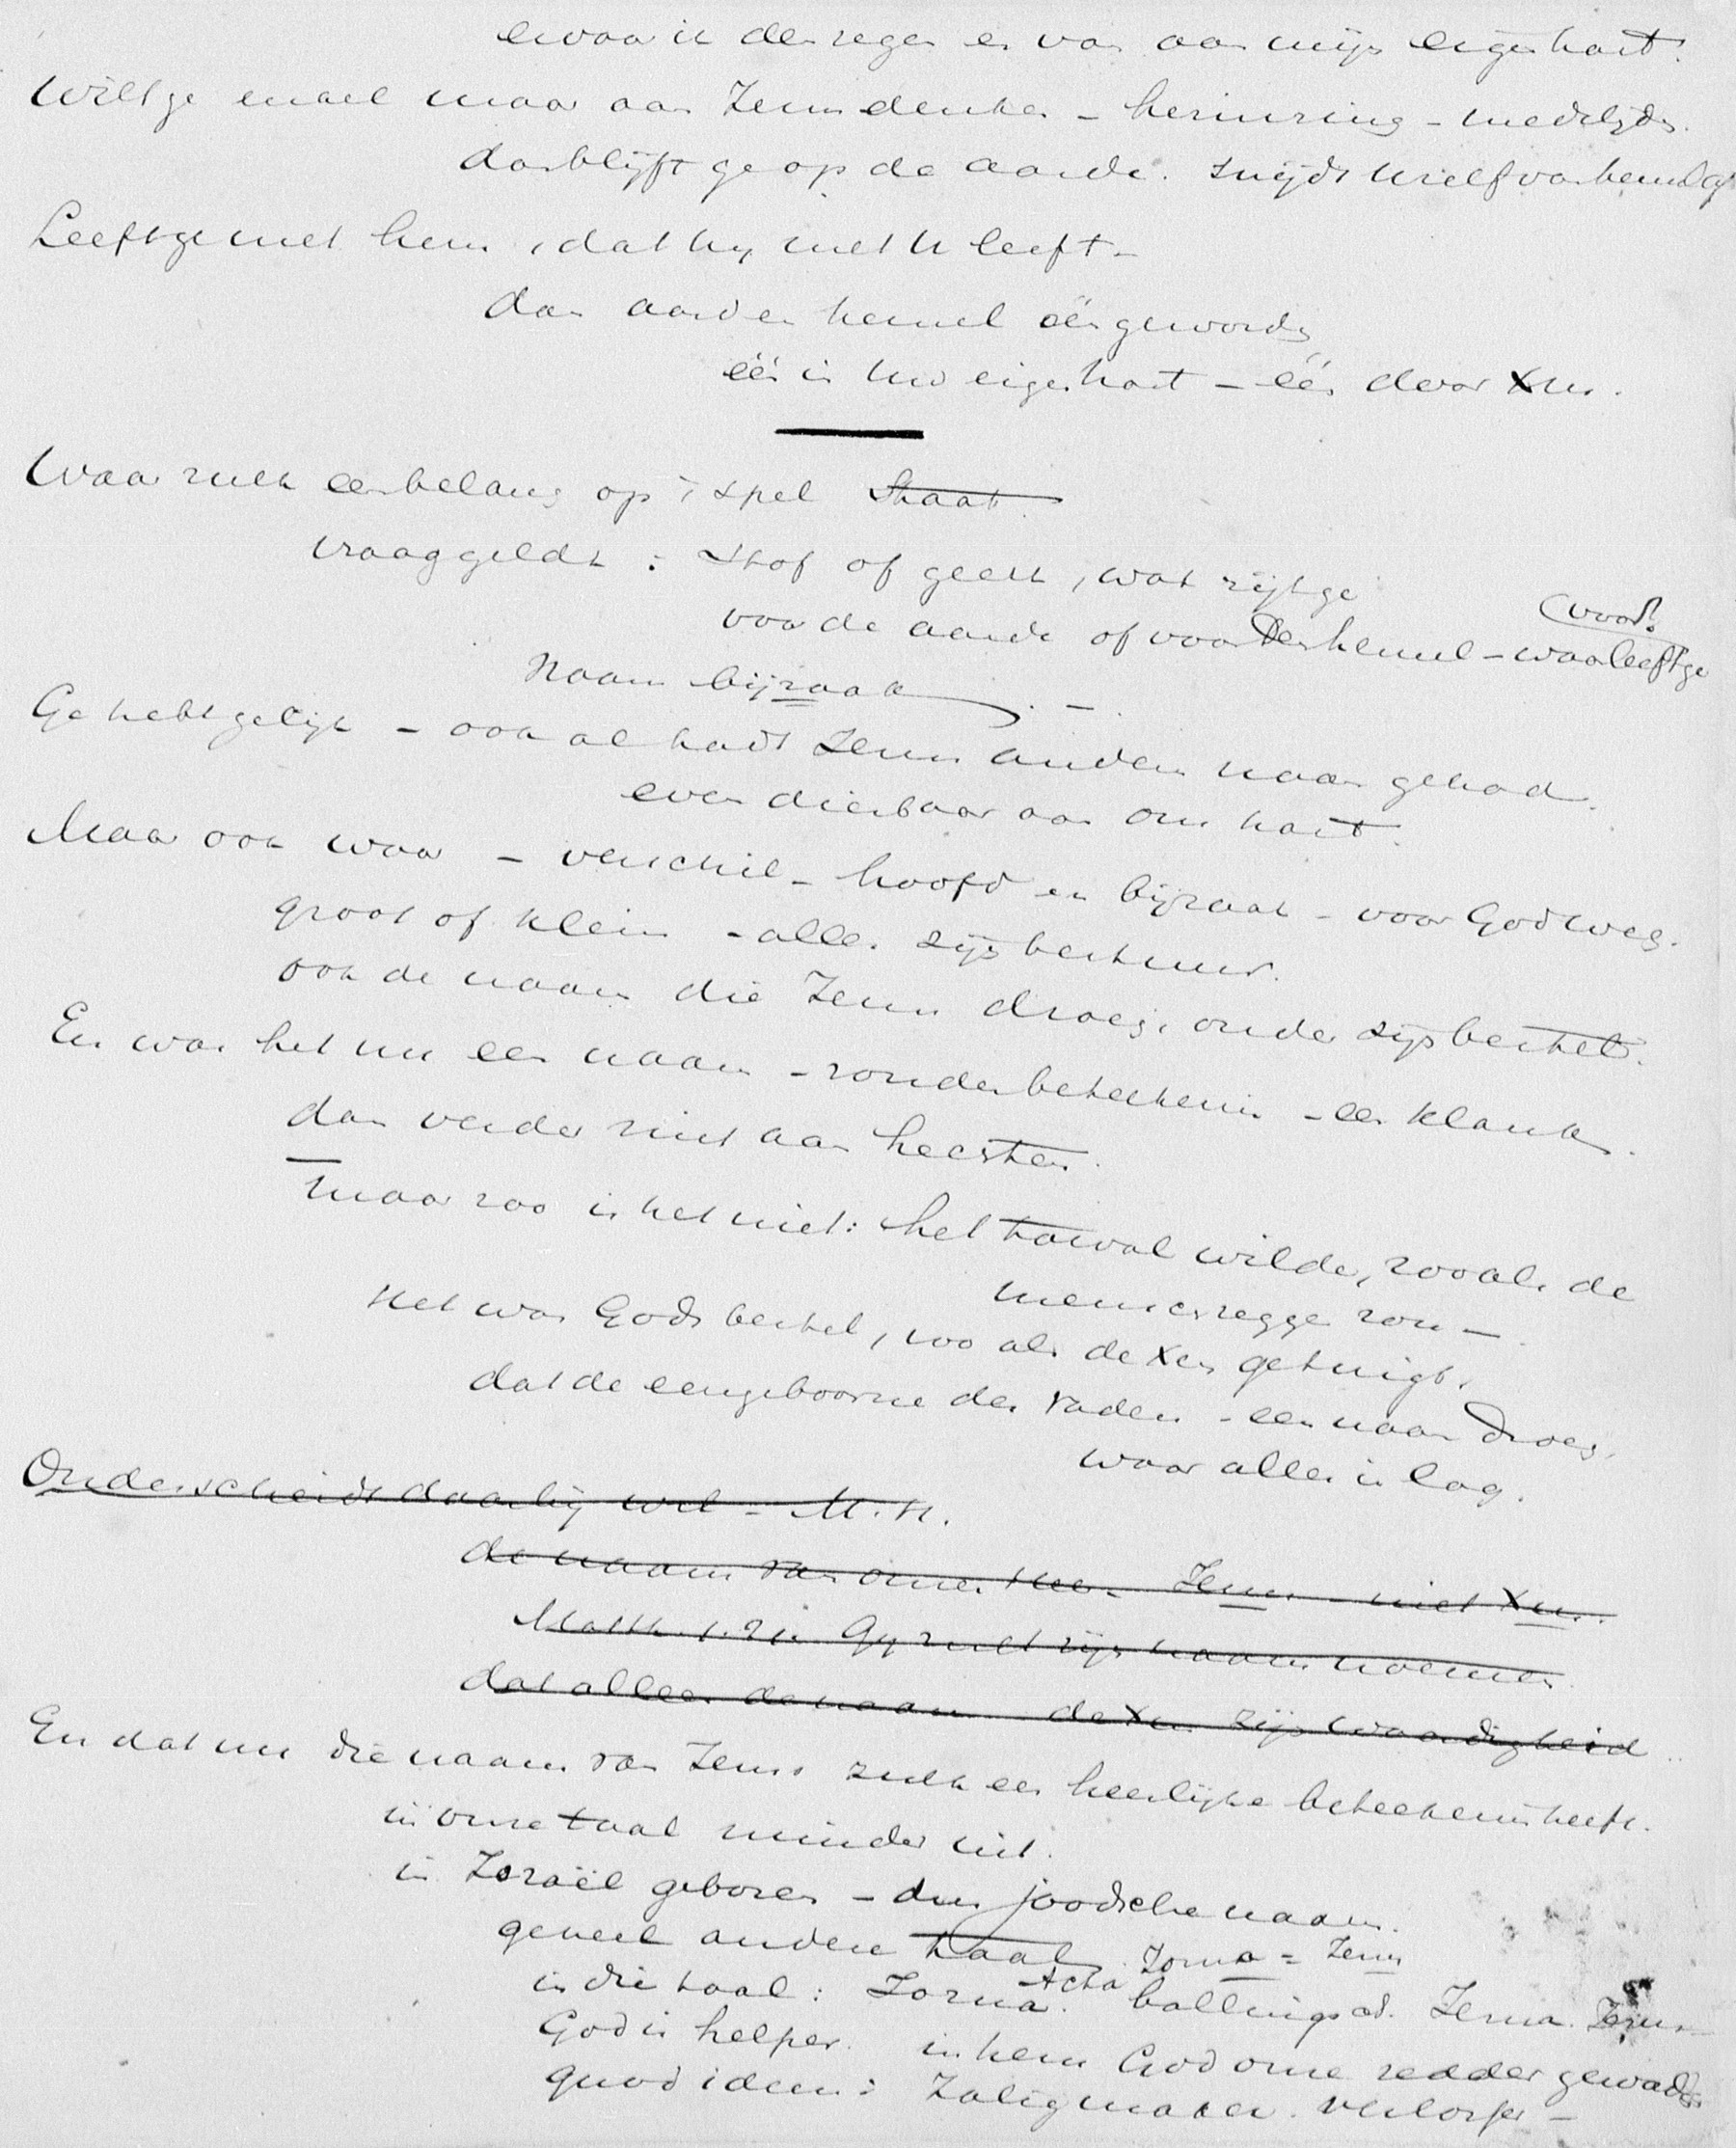 en waar is der zegen er van aan mijn eigen hart.
Wilt ge enkel maar aan Jezus denken – herinnering – medelijden.
dan blijft ge op de aarde. snijdt Uzelf van hemel af
Leeft ge met hem, dat hij met U leeft –
dan aard en hemel één geworden
één in Uw eigen hart – één door Xus.
Waar zulk een belang op 't spel staat.
vraag geldt: stof of geest, wat zijt ge
voor de aarde of voor den hemel – waar leeft ge
voor?
Naam bijzaak. –.
Ge hebt gelijk – ook al hadt Jezus anderen naam gehad.
even dierbaar aan ons hart.
Maar ook waar – verschil – hoofd en bijzaak – voor God weg.
groot of klein – alles zijn bestuur.
ook de naam die Jezus droeg, onder zijn bestel.
En was het nu een naam – zonder beteekenis – een klank.
dan verder niet aan hechten.
maar zoo is het niet: het toeval wilde, zooals de
menschen zeggen zou –
Het was Gods bestel, zoo als de Xen getuigt,
dat de eengeboorne des vaders – een naam droeg,
waar alles in lag.
Onderscheidt daarbij wel – M.H.
de naam van onzen Heer – Jezus – niet Xus.
Matth. 1.21. Gij zult zijn naam noemen
dat alleen de naam de Xus zijn waardigheid
En dat nu die naam van Jezus zulk een heerlijke beteekenis heeft.
in onze taal minder uit.
in Israël geboren – dus joodsche naam.
geheel andere taal. Jozua = Jezus
in die taal: Jozua. Acta ballingsch. Jesua. Jezus
God is helper. in hem God onze redder geworden
quod idem: Zaligmaker. Verlosser –